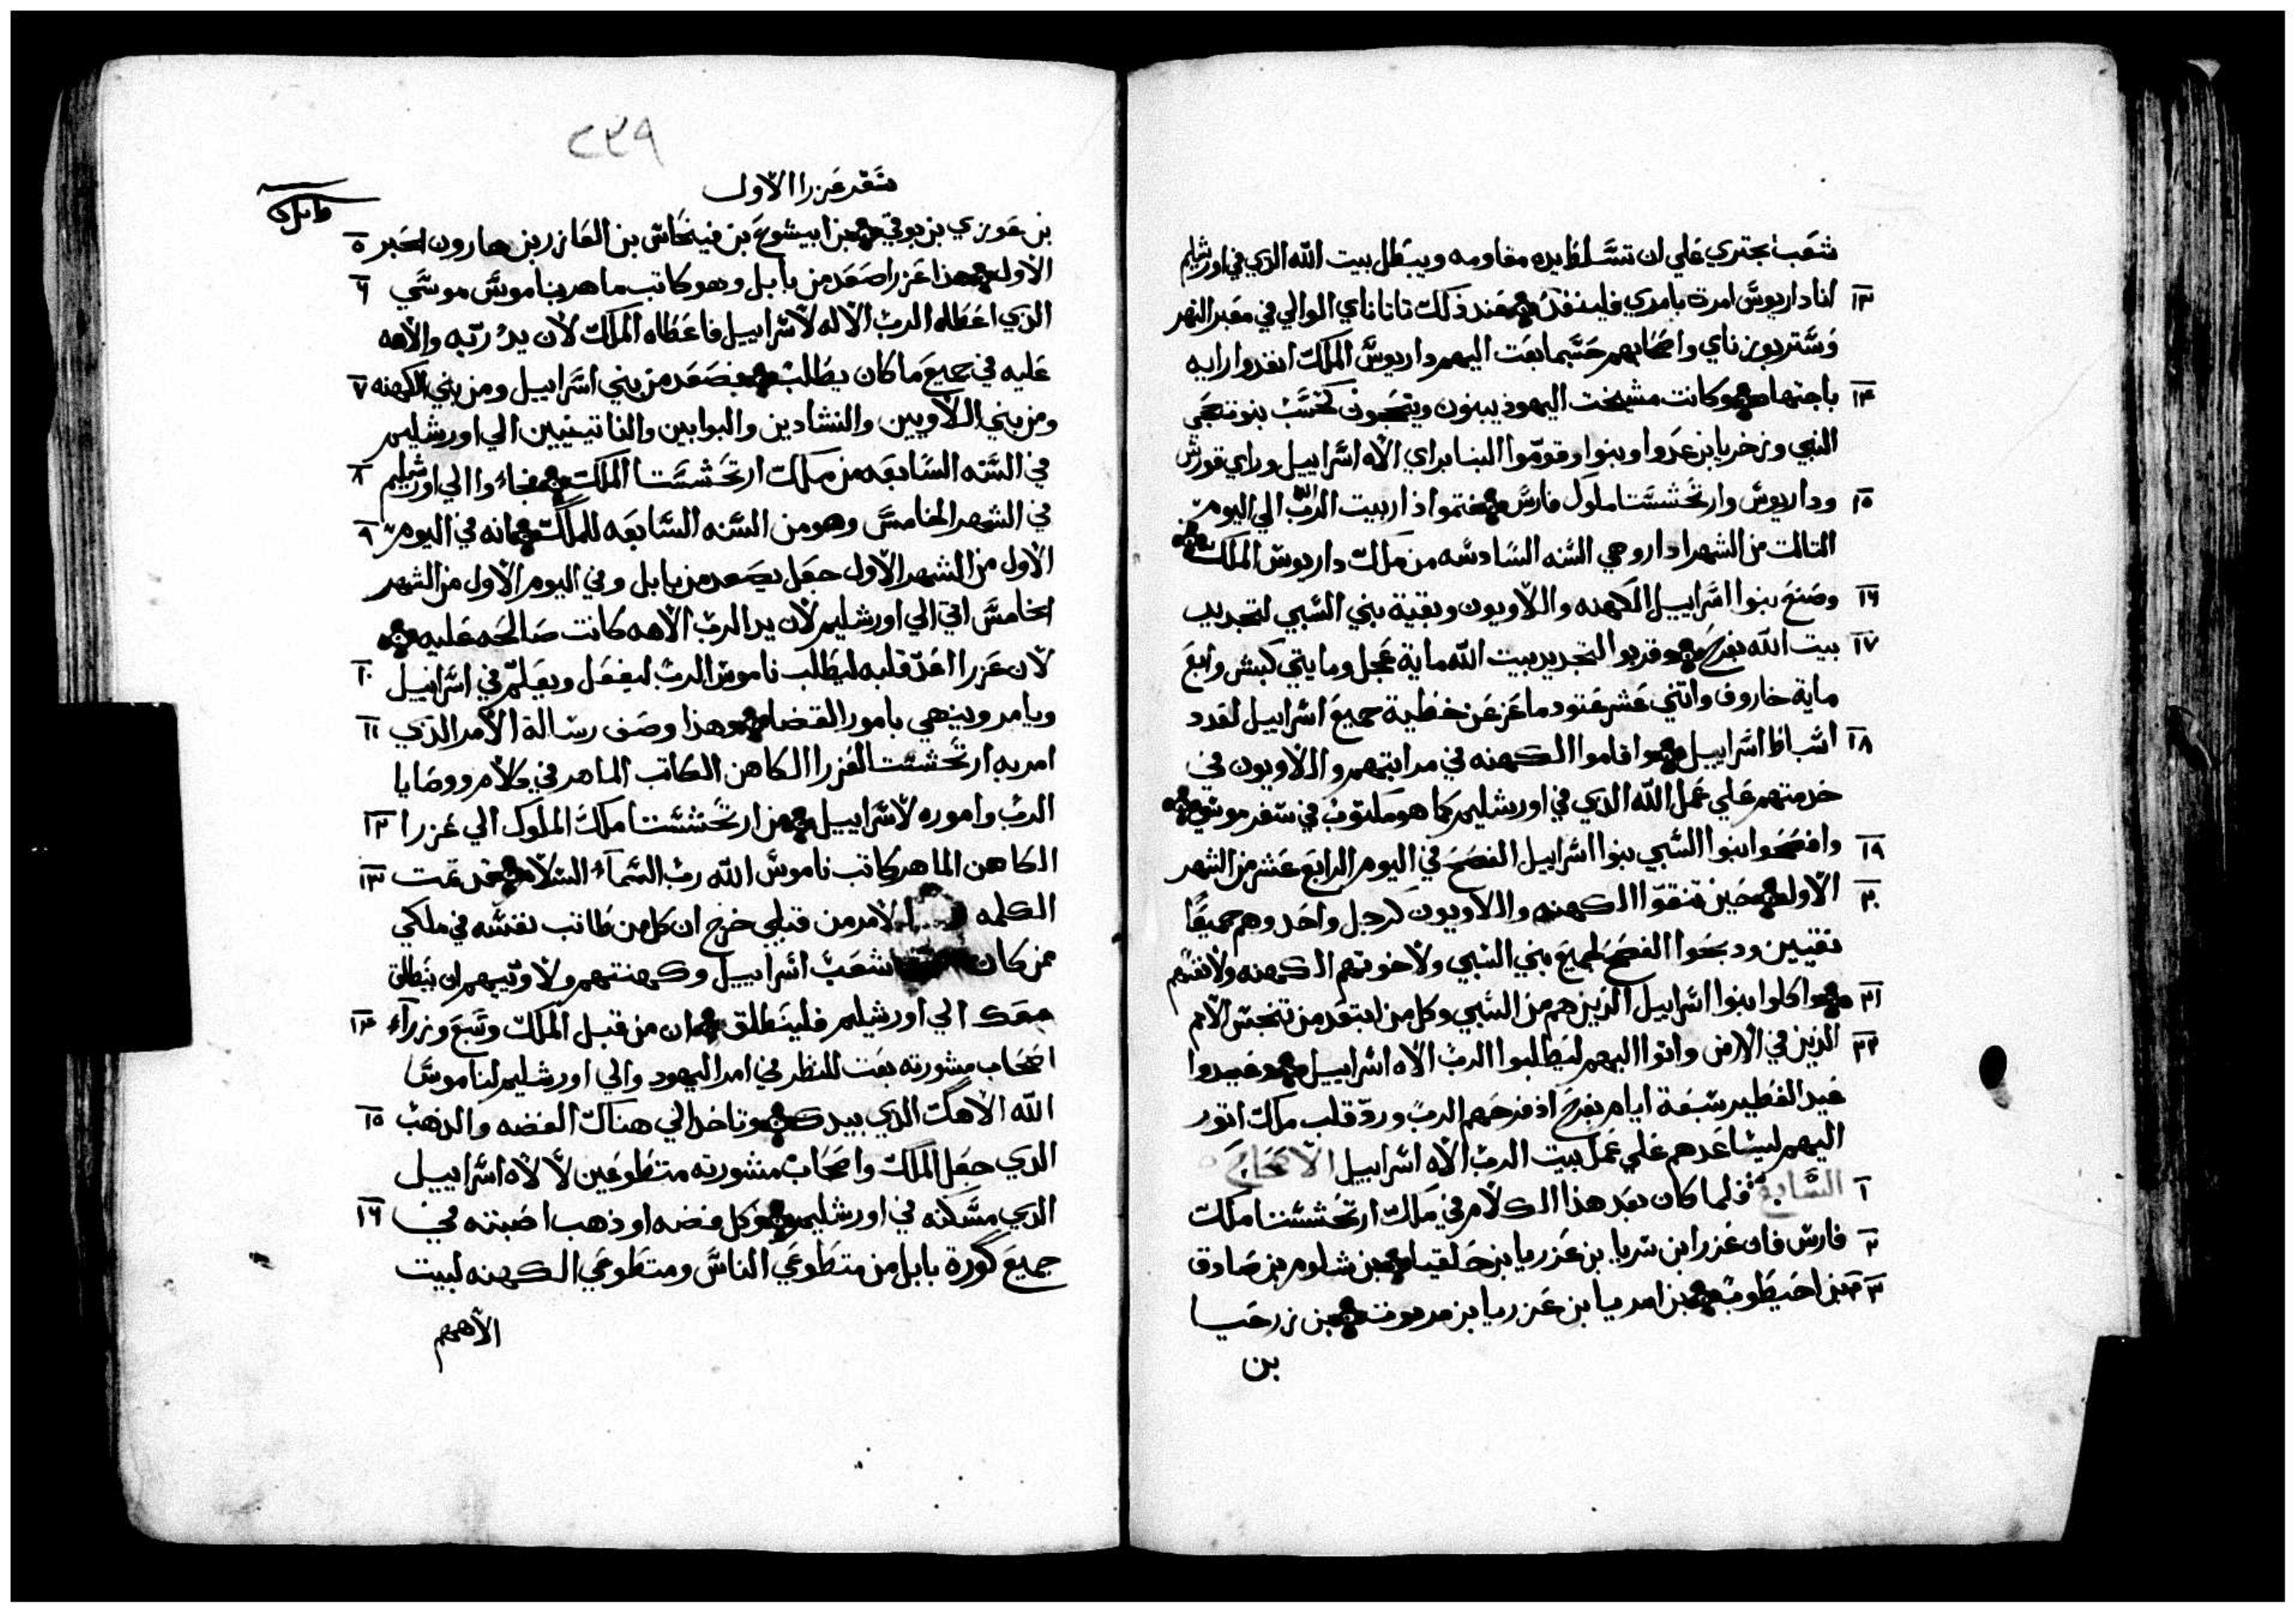 شعب يجتري علي ان تتسلط يده مقاومه ويبطل بيت الله الذي في اورشليم
١٣ انا داريوس امرت بامري فلينفذ عند ذلك تاناناي الوالي في معبر النهر
وستربوزناي واصحابهم حسبما بعت اليهم داريوس الملك انفدوا رايه
١٤ باجتهاد وكانت مشيخت اليهود يبنون وينجحون كحسب بنوة حجي
النبي وزخريا بن عدوا وبنوا وقوموا البنا براي الاه اسراييل وراي قورش
١٥ وداريوس وارتحششتا ملوك فارس فتموا اذا ربيت الرب الله الي اليوم
التالت من الشهر ادار وهي السنه السادسه من ملك داريوس الملك
١٦ وصنع بنوا اسراييل الكهنه واللاويون وبقية بني السبي لتجديد
١٧ بيت الله بفرح وقربوا لتجديد بيت الله ماية عجل ومايتي كبش واربع
ماية خاروف واتني عشر عتود ماعز عن خطية جميع اسراييل لعدد
١٨ اسباط اسراييل واقاموا الكهنه في مراتبهم واللاويون في
خدمتهم علي عمل الله الذي في اورشليم كما هو مكتوب في سفر موسي
١٩ وافصحوا بنوا السبي بنوا اسراييل الفصح في اليوم الرابع عشر من الشهر
٢٠ الاول حين تنقوا الكهنه واللاويون كرجل واحد وهم جميعا
نقيين ودبحوا الفصح لجميع بني السبي ولاخوتهم الكهنه ولانفسهم
٢١ واكلوا بنوا اسراييل الذين هم من السبي وكل من ابتعد من تنجس الامم
٢٢ الذين في الارض واتوا اليهم ليطلبوا الرب الاه اسراييل وعيدوا
عيد الفطير سبعة ايام بفرح اذ فرحهم الرب ورد قلب ملك اتور
اليهم ليساعدهم علي عمل بيت الرب الاه اسراييل الاصحاح
١ السابع فلما كان بعد هذا الكلام في ملك ارتحششتا ملك
٢ فارس فان عزرا بن سريا بن عزريا بن حلقيا بن شلوم بن صادوق
٣ بن احيطوب بن امريا بن عزريا بن مريوت بن زرحيا
بن
٢٣٩
سفر عزرا الاول
٥ بن عوزي بن بوقي بن ابيشوع بن فينحاس بن العازر بن هارون الحبر
٦ الاول هذا عزرا صعد من بابل وهو كاتب ماهر بناموس موسي
الذي اعطاه الرب الاله لاسراييل فاعطاه الملك لان يد ربه والاهه
٧ عليه في جميع ما كان يطلب فصعد من بني اسراييل ومن بني الكهنه
ومن بني اللاويين والنشادين والبوابين والناتينيين الي اورشليم
٨ في السنه السابعه من ملك ارتحششتا الملك فجاءوا الي اورشليم
٩ في الشهر الخامس وهو من السنه السابعه للملك انه في اليوم
الاول من الشهر الاول جعل يصعد من بابل وفي اليوم الاول من الشهر
الخامس اتي الي اورشليم لان يد الرب الاهه كانت صالحه عليه
١٠ لان عزرا اعد قلبه ليطلب ناموس الرب ليفعل ويعلم في اسراييل
١١ ويامر وينهي بامور القضا وهذا وصف رسالة الامر الذي
امر به ارتحششت العزرا الكاهن الكاتب الماهر في كلام ووصايا
١٢ الرب واموره لاسراييل من ارتحششتا ملك الملوك الي عزرا
١٣ الكاهن الماهر كاتب ناموس الله رب السماء السلام قد تمت
الكلمه الامر من قبلي خرج ان كل من طابت نفسه في ملكي
ممن كان شعب اسراييل وكهنتهم ولاوتيهم ان ينطلق
١٤ معك الي اورشليم فلينطلق ان من قبل الملك وسبع وزراء
اصحاب مشورته بعت للنظر في امر اليهود والي اورشليم لناموس
١٥ الله الاهك الذي بيدك وتاخد الي هناك الفضه والذهب
الذي جعل الملك واصحاب مشورته متطوعين لا لاه اسراييل
١٦ الذي مسكنه في اورشليم وكل فضه او ذهب اصبته في
جميع كورة بابل من متطوعي الناس ومتطوعي الكهنه لبيت
الاههم